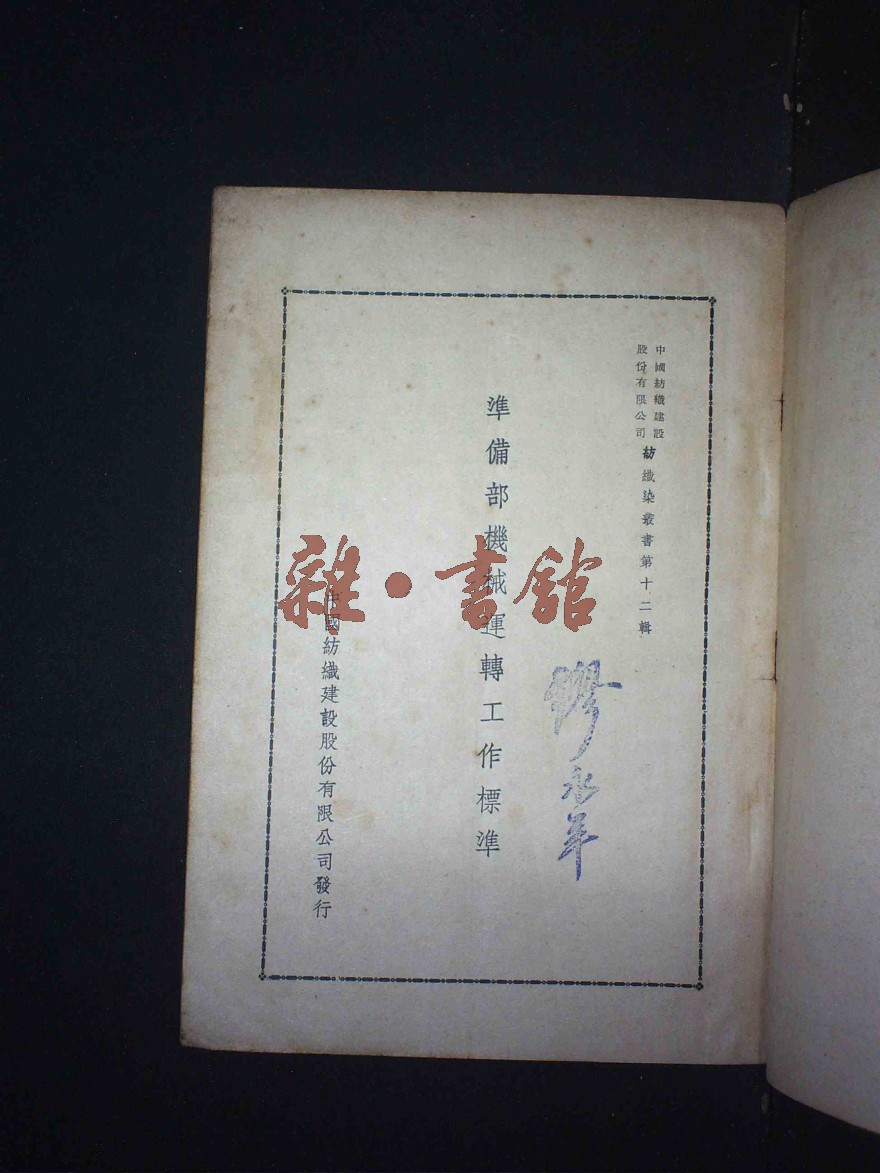 中國紡織建設
股份有限公司
紡織染叢書第十二輯
準備部機械運轉工作標準
國紡織建設股份有限公司發行
雜·書館
永年